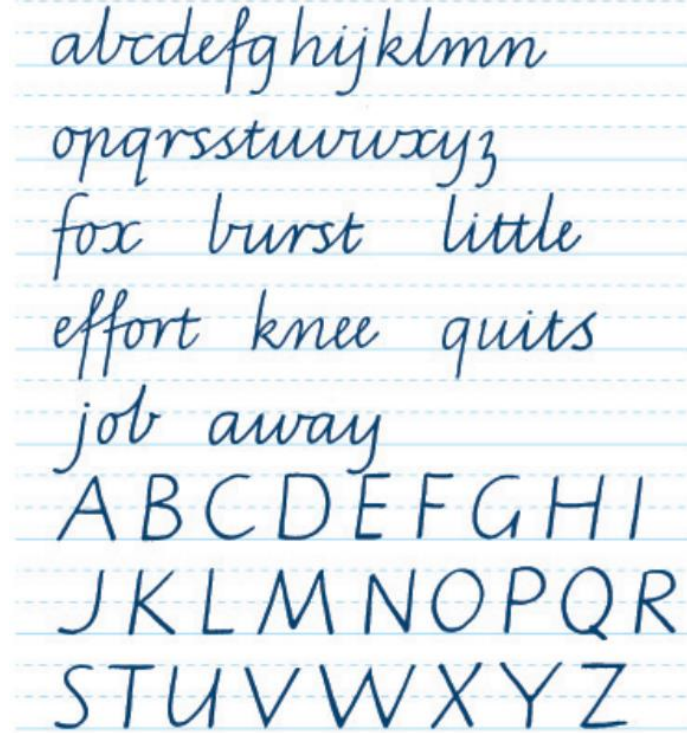 abcdefghijklmn
opqrsstuvwxyz
fox burst little
effort knee quits
job away
A B C D E F G H I
J K L M N O P Q R
S T U V W X Y Z